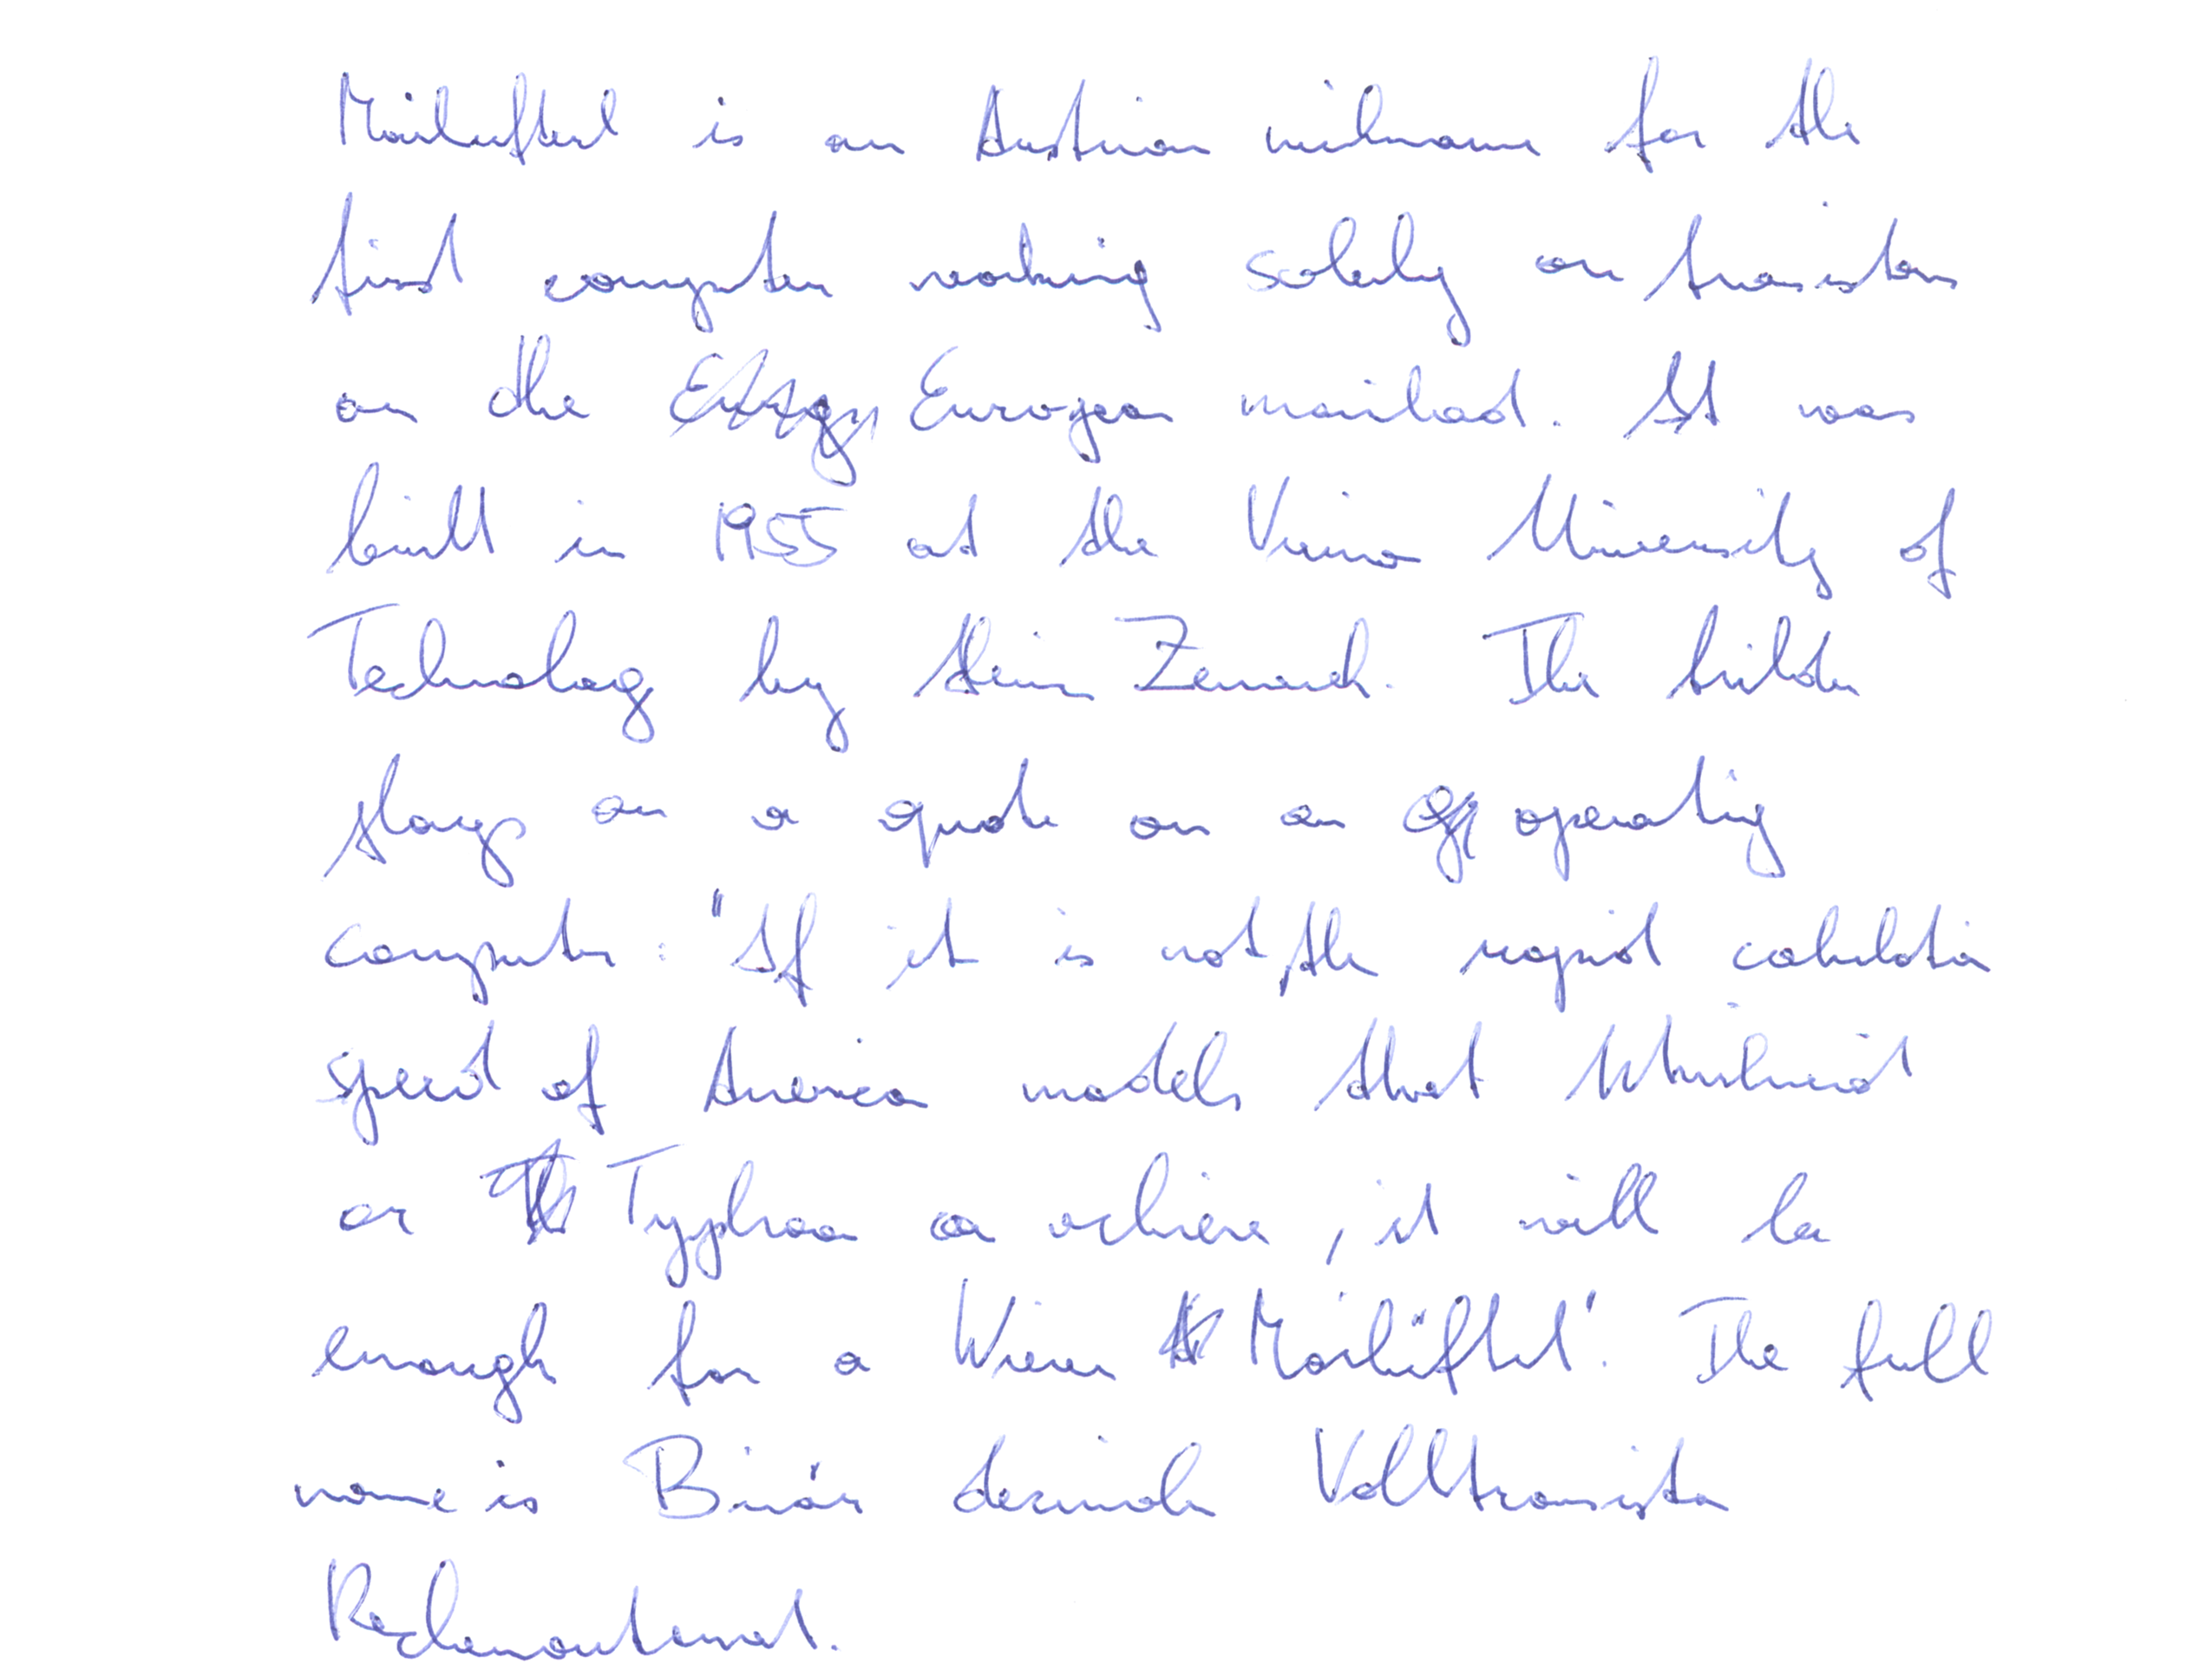 Mailüfterl is an Austrian nickname for the
first computer working solely on transistors
on the European mainland. It was
built in 1955 at the Vienna University of
Technology by Heinz Zemanek. The builder
plays on a quote on an operating
computer: "If it is not the rapid calculation
speed of American models that Whirlwind
or Typhoon can achieve, it will be
enough for a Wiener Mailüfterl". The full
name is Binär dezimaler Volltransistor
Rechenautomat.